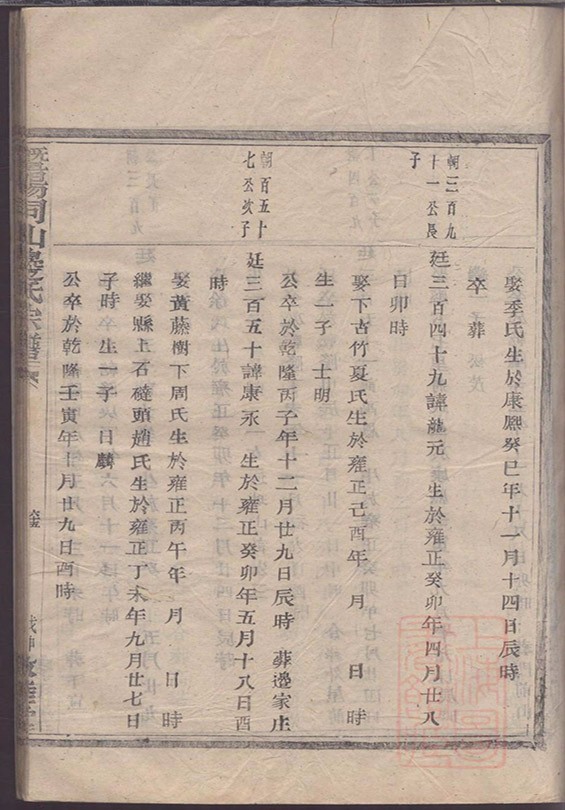 娶季氏生於康熙癸巳年十一月十四日辰時
卒 葬
朝三百九
十一公長
子
廷三百四十九諱龍元 生於雍正癸卯年四月廿八
日卯時
娶下古竹夏氏生於雍正己酉年 月 日 時
生一子 士明
公卒於乾隆丙子年十二月廿九日辰時 葬邊家庄
朝百五十
七公次子
廷三百五十諱康永 生於雍正癸卯年五月十八日酉
時
娶黃藤樹下周氏生於雍正丙午年 月 日 時
繼娶縣上石碰頭趙氏生於雍正丁未年九月廿七日
子時 生一子 日麟
公卒於乾隆壬寅年十月廿九日酉時
暨陽同山邊氏宗譜
戊申